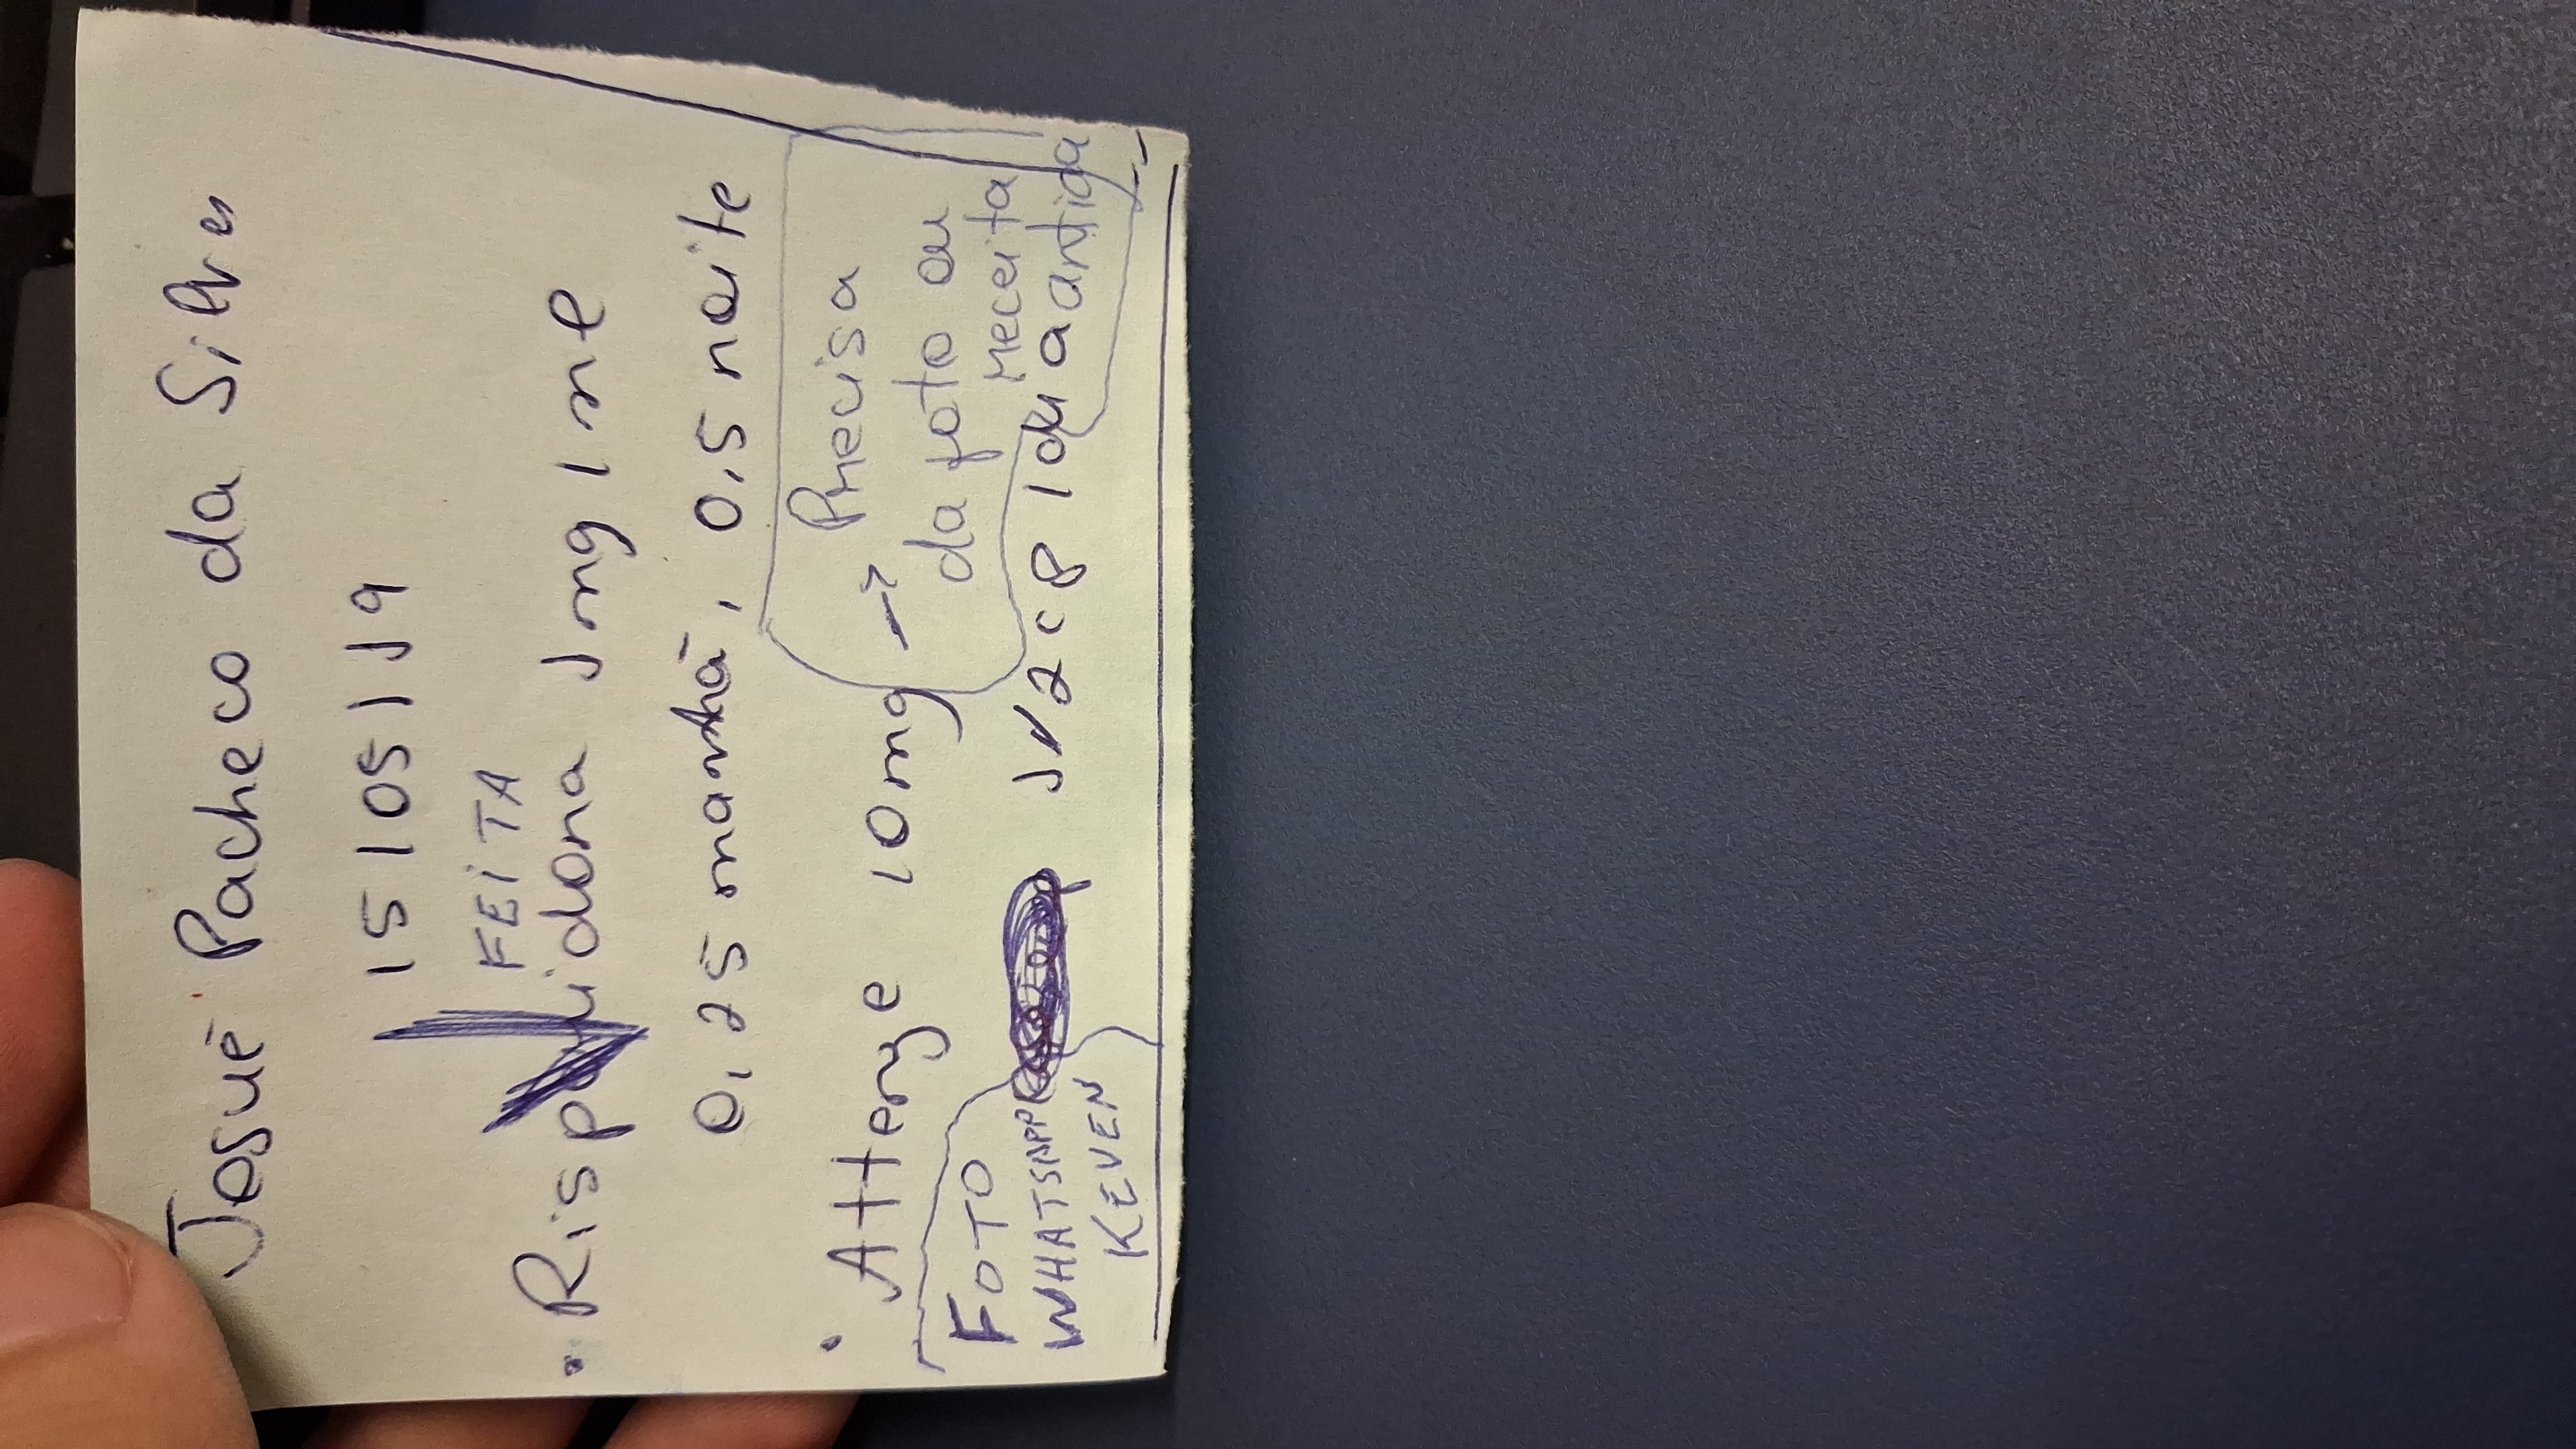 Josué Pacheco da Silva
15/05/19
FEITA
• Risperidona 1mg/ml
0,25 manhã, 0,5 noite
• Attenze 10mg → Precisa
da foto ou
receita
antiga
FOTO
WHATSAPP
KEVEN
2cp/dia